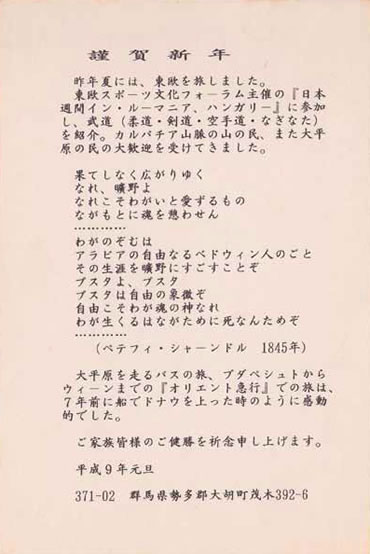 謹賀新年
昨年夏には、東欧を旅しました。
東欧スポーツ文化フォーラム主催の『日本
週間イン・ルーマニア、ハンガリー』に参加
し、武道(柔道・剣道・空手道・なぎなた)
を紹介。カルパチア山脈の山の民、また大平
原の民の大歓迎を受けてきました。
果てしなく広がりゆく
なれ、曠野よ
なれこそわがいと愛ずるもの
ながもとに魂を憩わせん
…………
わがのぞむは
アラビアの自由なるベドウィン人のごと
その生涯を曠野にすごすことぞ
プスタよ、プスタ
プスタは自由の象徴ぞ
自由こそわが魂の神なれ
わが生くるはながために死なんためぞ
…………
(ペテフィ・シャーンドル 1845年)
大平原を走るバスの旅、ブダペシュトから
ウィーンまでの『オリエント急行』での旅は、
7年前に船でドナウを上った時のように感動
的でした。
ご家族皆様のご健勝を祈念申し上げます。
平成9年元旦
371-02 群馬県勢多郡大胡町茂木392-6